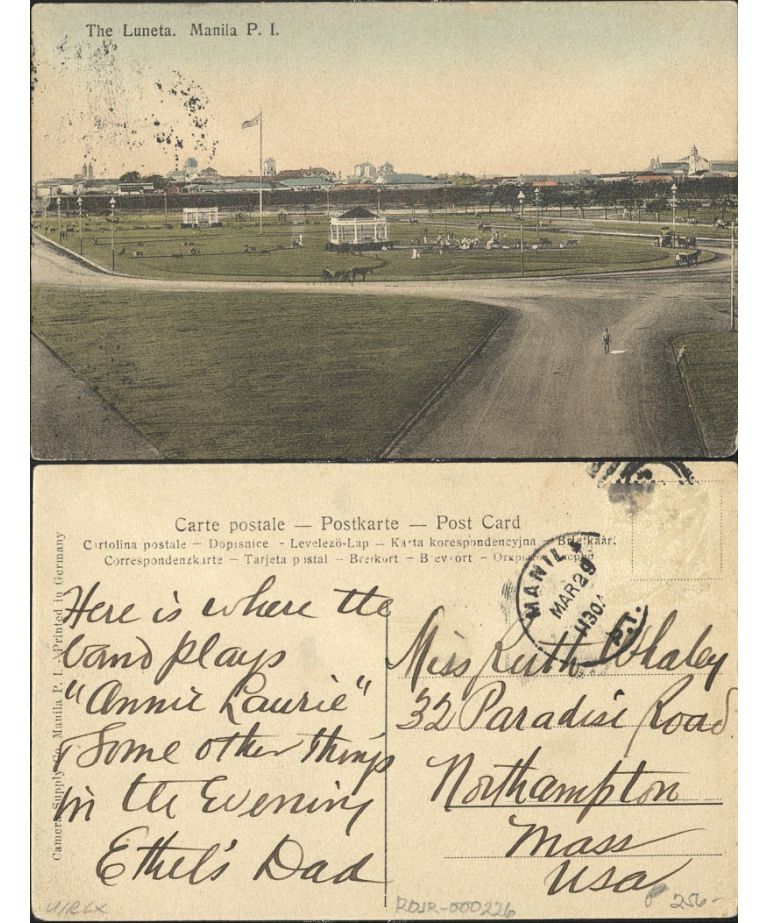 The Luneta. Manila P. I.
Carte postale — Postkarte — Post Card
Cartolina postale – Dopisnice – Levelező-Lap – Karta korespondencyjna – Briefkaart.
Correspondenzkarte – Tarjeta postal – Brefkort – Brevkort –
Camera Supply Co. Manila P. I. Printed in Germany
MANILA
MAR 29
1130A
P.I.
Here is where the
band plays
"Annie Laurie"
& Some other things
in the Evening
Ethel's Dad
Miss Ruth Whaley
32 Paradise Road
Northampton
Mass
USA
RDJR-000226
256-